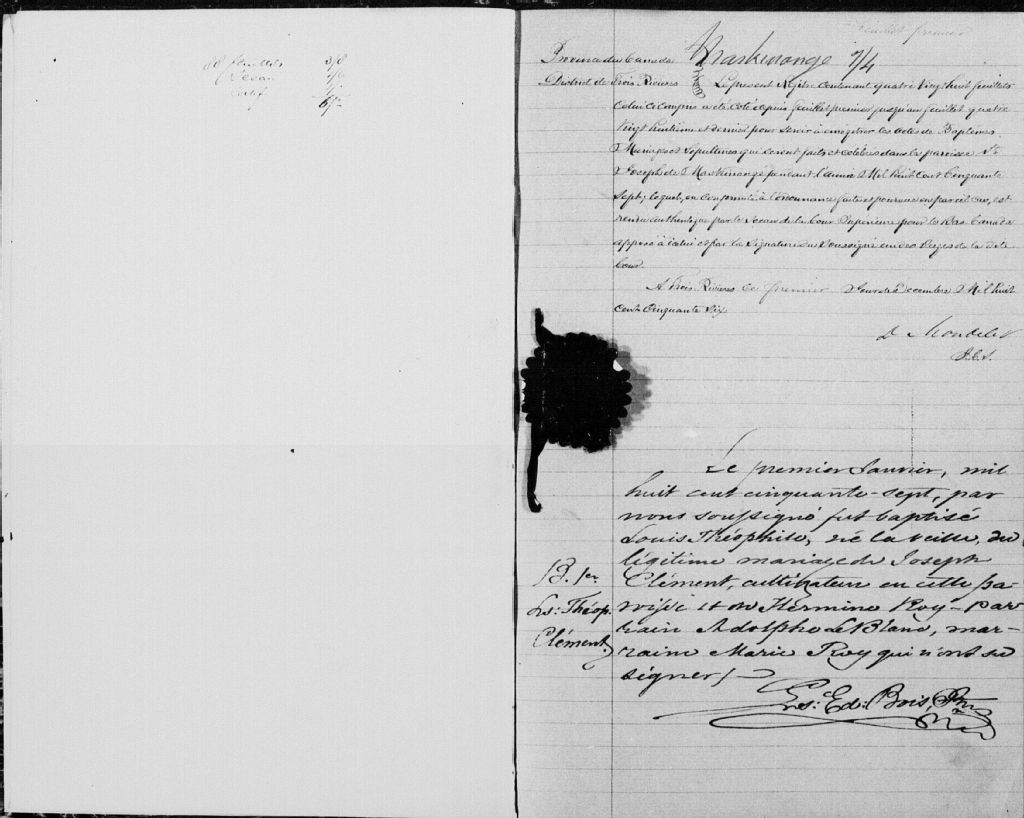 88 feuillets 3/8
Sceau
Certif
feuillet premier
Province du Canada Maskinongé 7/4
District de Trois Rivieres Le présent Régître contenant quatre Vingt huit feuillets
Celui Ci Compris a été Coté depuis feuillet premier jusqu'au feuillet quatre
Vingt huitieme et dernier pour Servir à enrégitrer les actes de Baptêmes
Mariages et Sepultures qui seront faits et célébrés dans la paroisse St
Joseph de Maskinongé pendant l'année Mil huit Cent Cinquante
Sept; lequel, en Conformité à l'ordonnance faite et pourvue en pareil Cas, est
rendu authentique par le Sceau de la Cour Superieure pour le Bas Canada
apposé à icelui et par la Signature du Soussigné un des Juges de la dite
Cour.
A Trois Rivieres Ce premier Jour de Decembre Mil huit
Cent Cinquante Six
D. Mondelet
J.C.S.
Le premier Janvier, mil
huit cent cinquante-sept, par
nous soussigné fut baptisé
Louis Théophile, né la veille, du
légitime mariage de Joseph
B. 1er
Clément, cultivateur en cette pa-
Ls: Théop.
roisse et de Hermine Roy - par
Clément
rain Adolphe Le Blanc, mar-
raine Marie Roy qui n'ont su
signer/-
Ls: Ed: Bois, Ptre